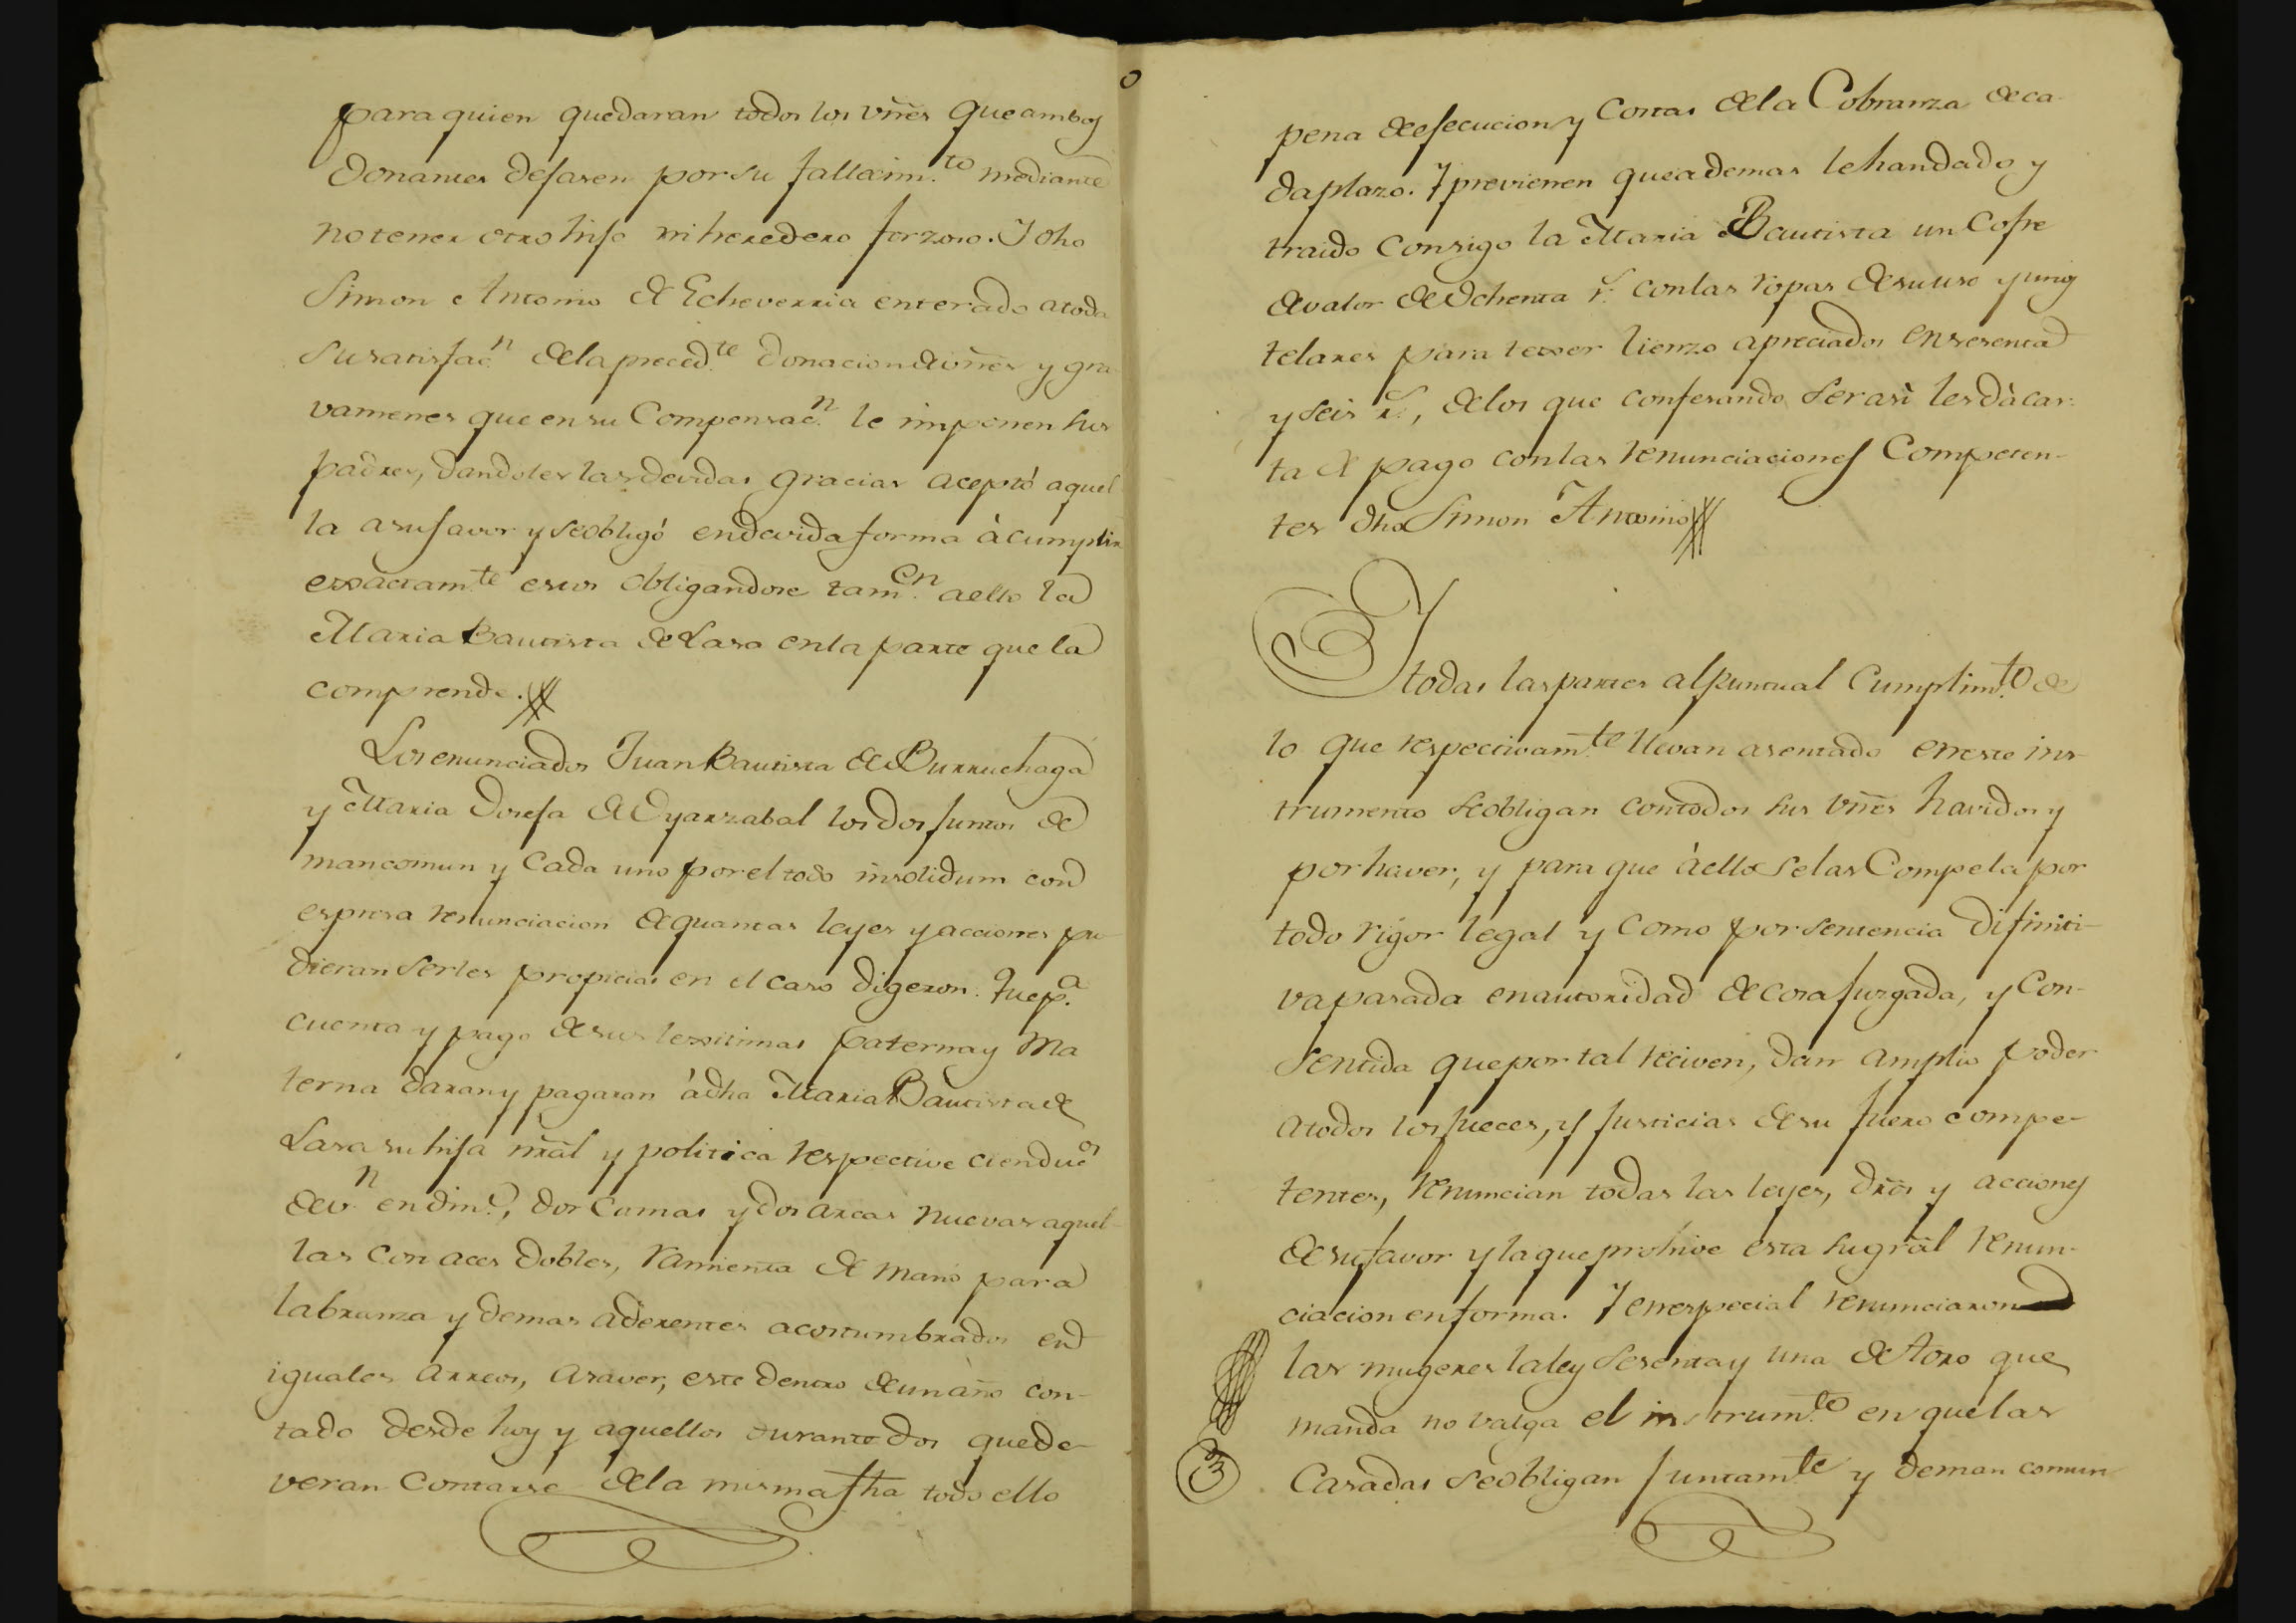 para quien quedaran todos los vñes que ambos
donantes dejasen por su fallecim.to mediante
no tener otro hijo ni heredero forzoso. I dho
Simon Antonio de Echeverria enterado a toda
su satisfac.n de la preced.te donacion de vñes y gra
vamenes que en su Compensac.n le imponen sus
padres, dandoles las devidas gracias aceptó aquel
la a su favor y se obligó en devida forma à cumplir
exactam.te estos obligandose tam.en a ello la
Maria Bautista de Lasa en la parte que la
comprende.
Los enunciados Juan Bautista de Burruchaga
y Maria Josefa de Oyarzabal los dos juntos de
mancomun y Cada uno por el todo insolidum con
espresa renunciacion de quantas leyes y acciones pu
dieran serles propicias en el caso digeron: Que p.a
cuenta y pago de sus lexitimas paterna y Ma
terna daran y pagaran à dha Maria Bautista de
Lasa su hija nrãl y politica respective cien duc.os
de v.n en din.o, dos Camas y dos arcas nuevas aquel-
las con aces dobles, ramienta de mano para
labranza y demas aderentes acostumbrados en
iguales arreos, a saver, este dentro de un año con-
tado desde hoy y aquellos durante dos que de-
veran Contarse de la misma fha todo ello
pena de ejecucion y Costas de la Cobranza de ca-
da plazo. Y previenen que ademas le han dado y
traido Consigo la Maria Bautista un Cofre
de valor de Ochenta r.s con las ropas de su uso y unos
telares para texer lienzo apreciados en sesenta
y seis r.s, de los que confesando ser asì les dà car-
ta de pago con las renunciaciones Competen-
tes dho Simon Antonio
Y todas las partes al puntual Cumplim.to de
lo que respectivam.te llevan asentado en este ins-
trumento se obligan con todos sus vñes havidos y
por haver, y para que à ello se las Compela por
todo rigor legal y como por sentencia difiniti-
va pasada en autoridad de cosa juzgada, y Con-
sentida que por tal reciven, dan amplio poder
a todos los jueces, y Justicias de su fuero compe-
tentes, renuncian todas las leyes, dr̃os y acciones
de su favor y la que prohive esta su grãl renun-
ciacion en forma. Y en especial renunciaron
las mugeres la ley sesenta y una de Toro que
manda no valga el instrum.to en que las
Casadas se obligan juntam.te y de man comun